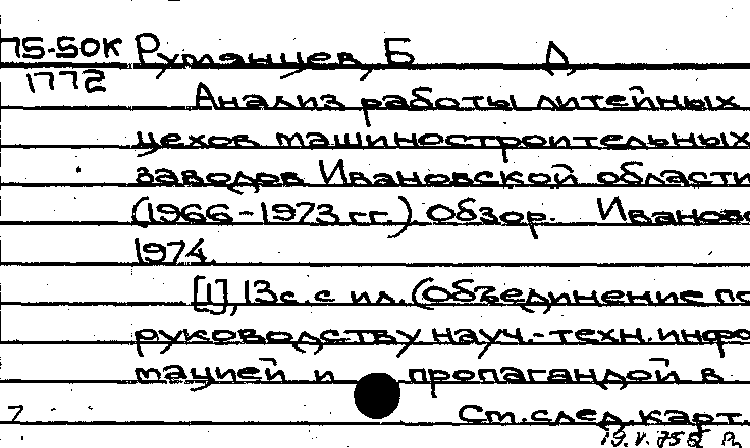 75-50К Румянцев, Б Д,
1772
Анализ работы литейных
цехов машиностроительных
заводов Ивановской области
(1966-1973 гг.) Обзор. Иваново
1974.
[1], 13 с. с ил. (Объединение по
руководству науч.-техн. инфо
мацией и пропагандой в
7 См. след. карт.
19.V.75